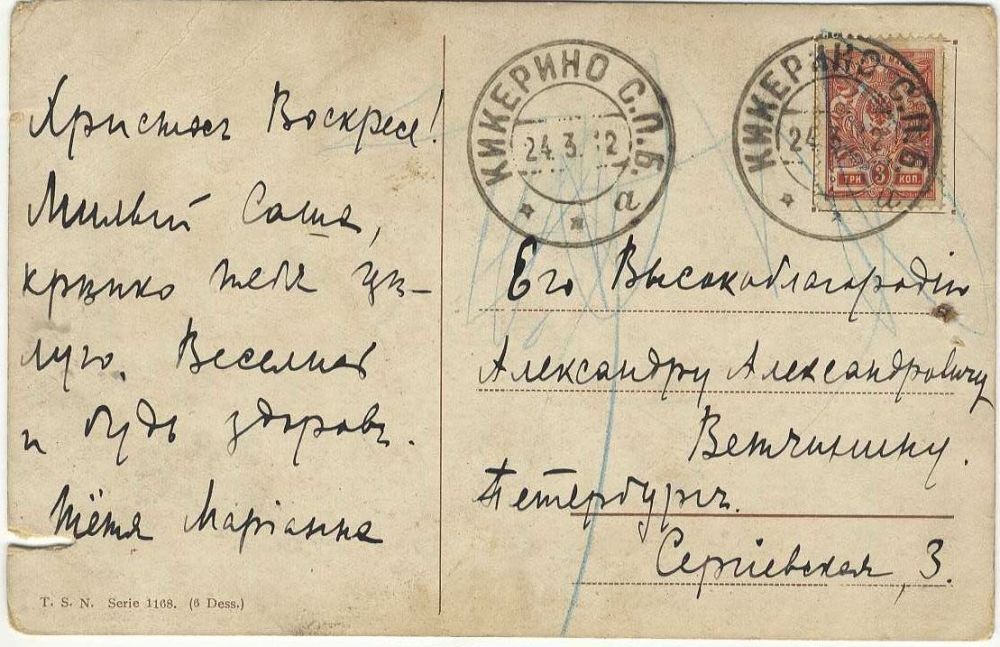 Христосъ Воскресе!
Милый Саша,
крѣпко тебя цѣ-
лую. Веселись
и будь здоровъ.
Тётя Маріанна
T. S. N. Serie 1168. (6 Dess.)
КИКЕРИНО С.П.Б.
24.3.12
а
КИКЕРИНО С.П.Б.
24.3.12
а
ТРИ 3 КОП.
Его Высокоблагородію
Александру Александровичу
Ветчинину.
Петербургъ.
Сергіевская, 3.